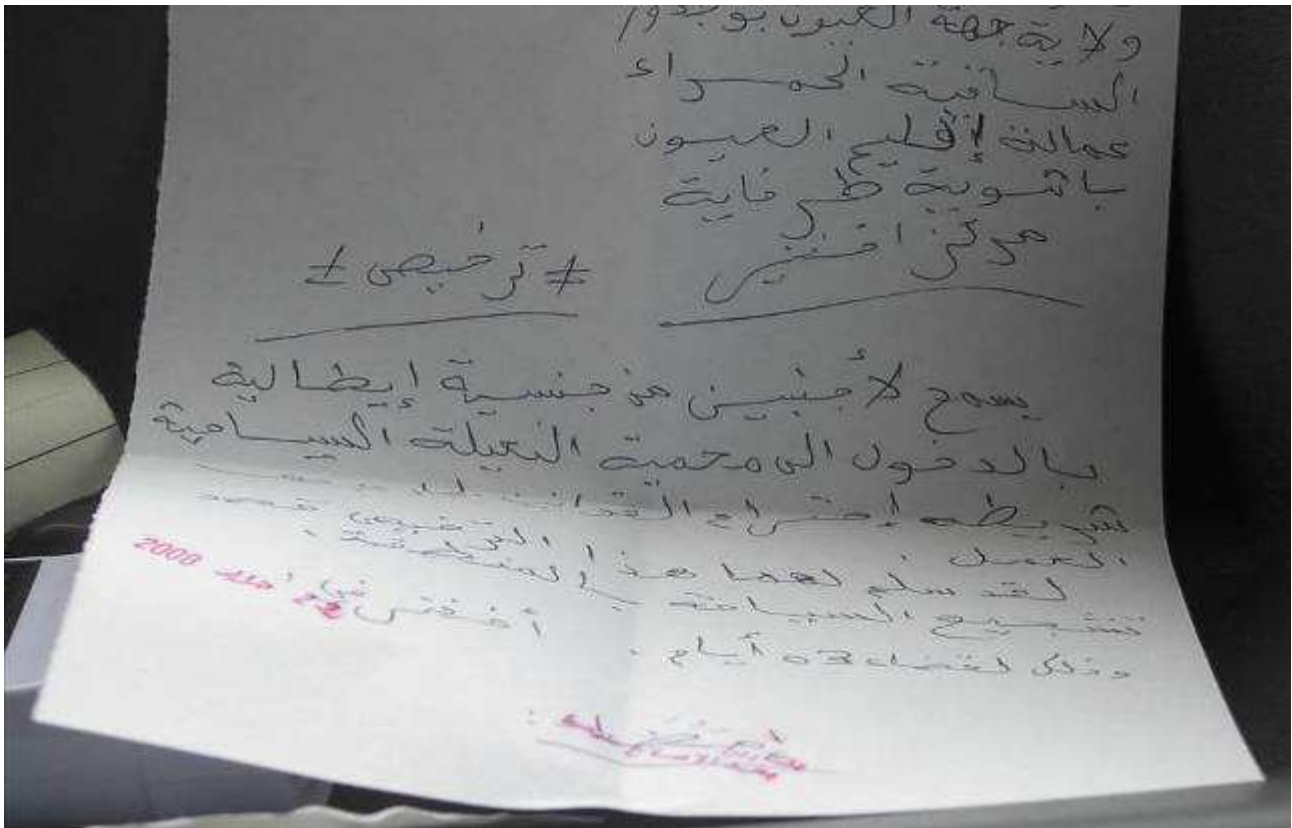 ولاية جهة العيون بوجدور
الساقية الحمراء
عمالة إقليم العيون
باشوية طرفاية
مركز اخفنير
≠ ترخيص ≠
يسمح لأجنبين من جنسية إيطالية
بالدخول الى محمية النعيلة السياحية
شريطه إحترام القوانين
العمل .
لقد سلم لهما هذا الترخيص قصد
تشجيع السياحة بالمنطقة .
وذلك لقضاء 03 أيام .
أخفنير في 22 2000